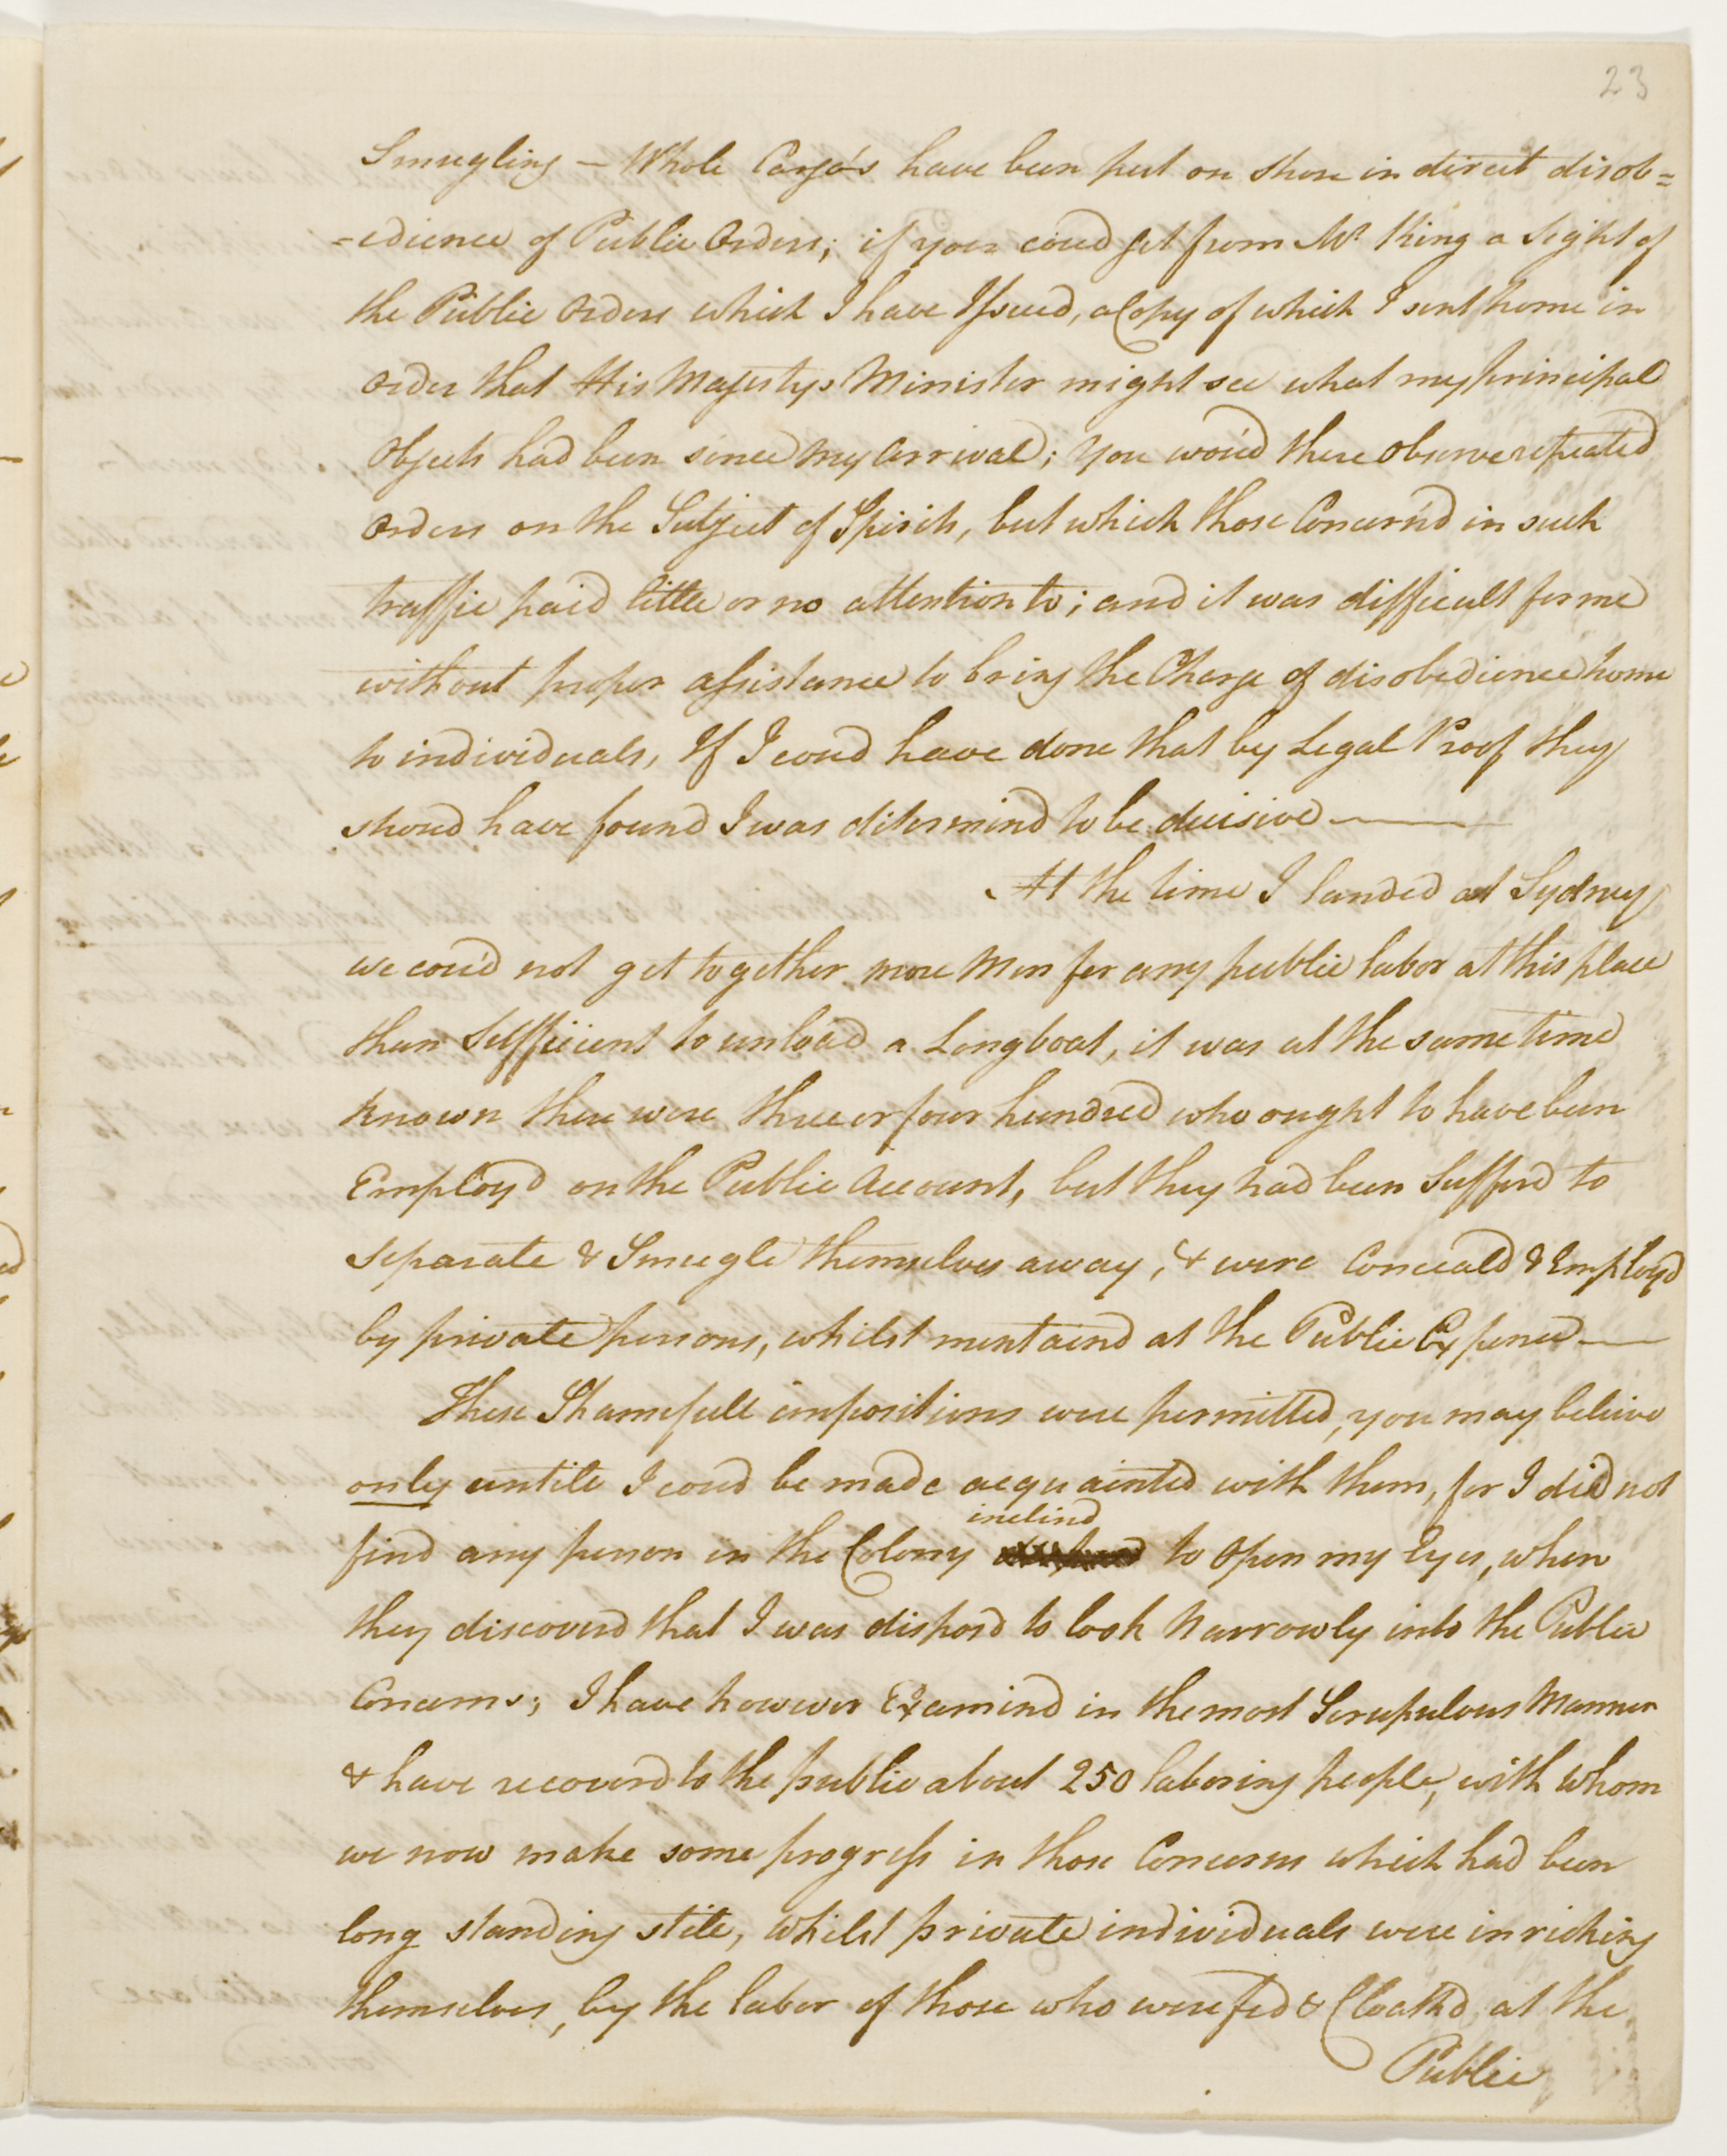 23
Smugling – Whole Cargo's have been put on shore in direct disob=
=edience of Public Orders; if you coud get from Mr. King a sight of
the Public Orders which I have Issued, a Copy of which I sent home in
order that His Majestys Minister might see what my principal
Objects had been since my arrival; you wou'd there observe repeated
orders on the Subject of Spirits, but which those Concern'd in such
traffic paid little or no attention to; and it was difficult for me
without proper assistance to bring the Charge of disobedience home
to individuals, If I coud have done that by Legal Proof they
shoud have found I was determind to be decisive —
At the time I landed at Sydney
we cou'd not get together more Men for any public labor at this place
than Sufficient to unload a Longboat, it was at the same time
known there were three or four hundred who ought to have been
Employ'd on the Public Account, but they had been Sufferd to
separate & Smugle themselves away, & were Conceald & Employd
by private persons, whilst mentaind at the Public Expence —
These Shamefull impositions were permitted, you may believe
only untill I coud be made acquainted with them, for I did not
inclind
find any person in the Colony to open my Eyes, when
they discoverd that I was disposd to look Narrowly into the Public
Concerns; I have however Examind in the most Scrupulous Manner
& have recoverd to the public about 250 laboring people, with whom
we now make some progress in those Concerns which had been
long standing still, whilst private individuals were inriching
themselves, by the labor of those who were fed & Cloathd at the
Public